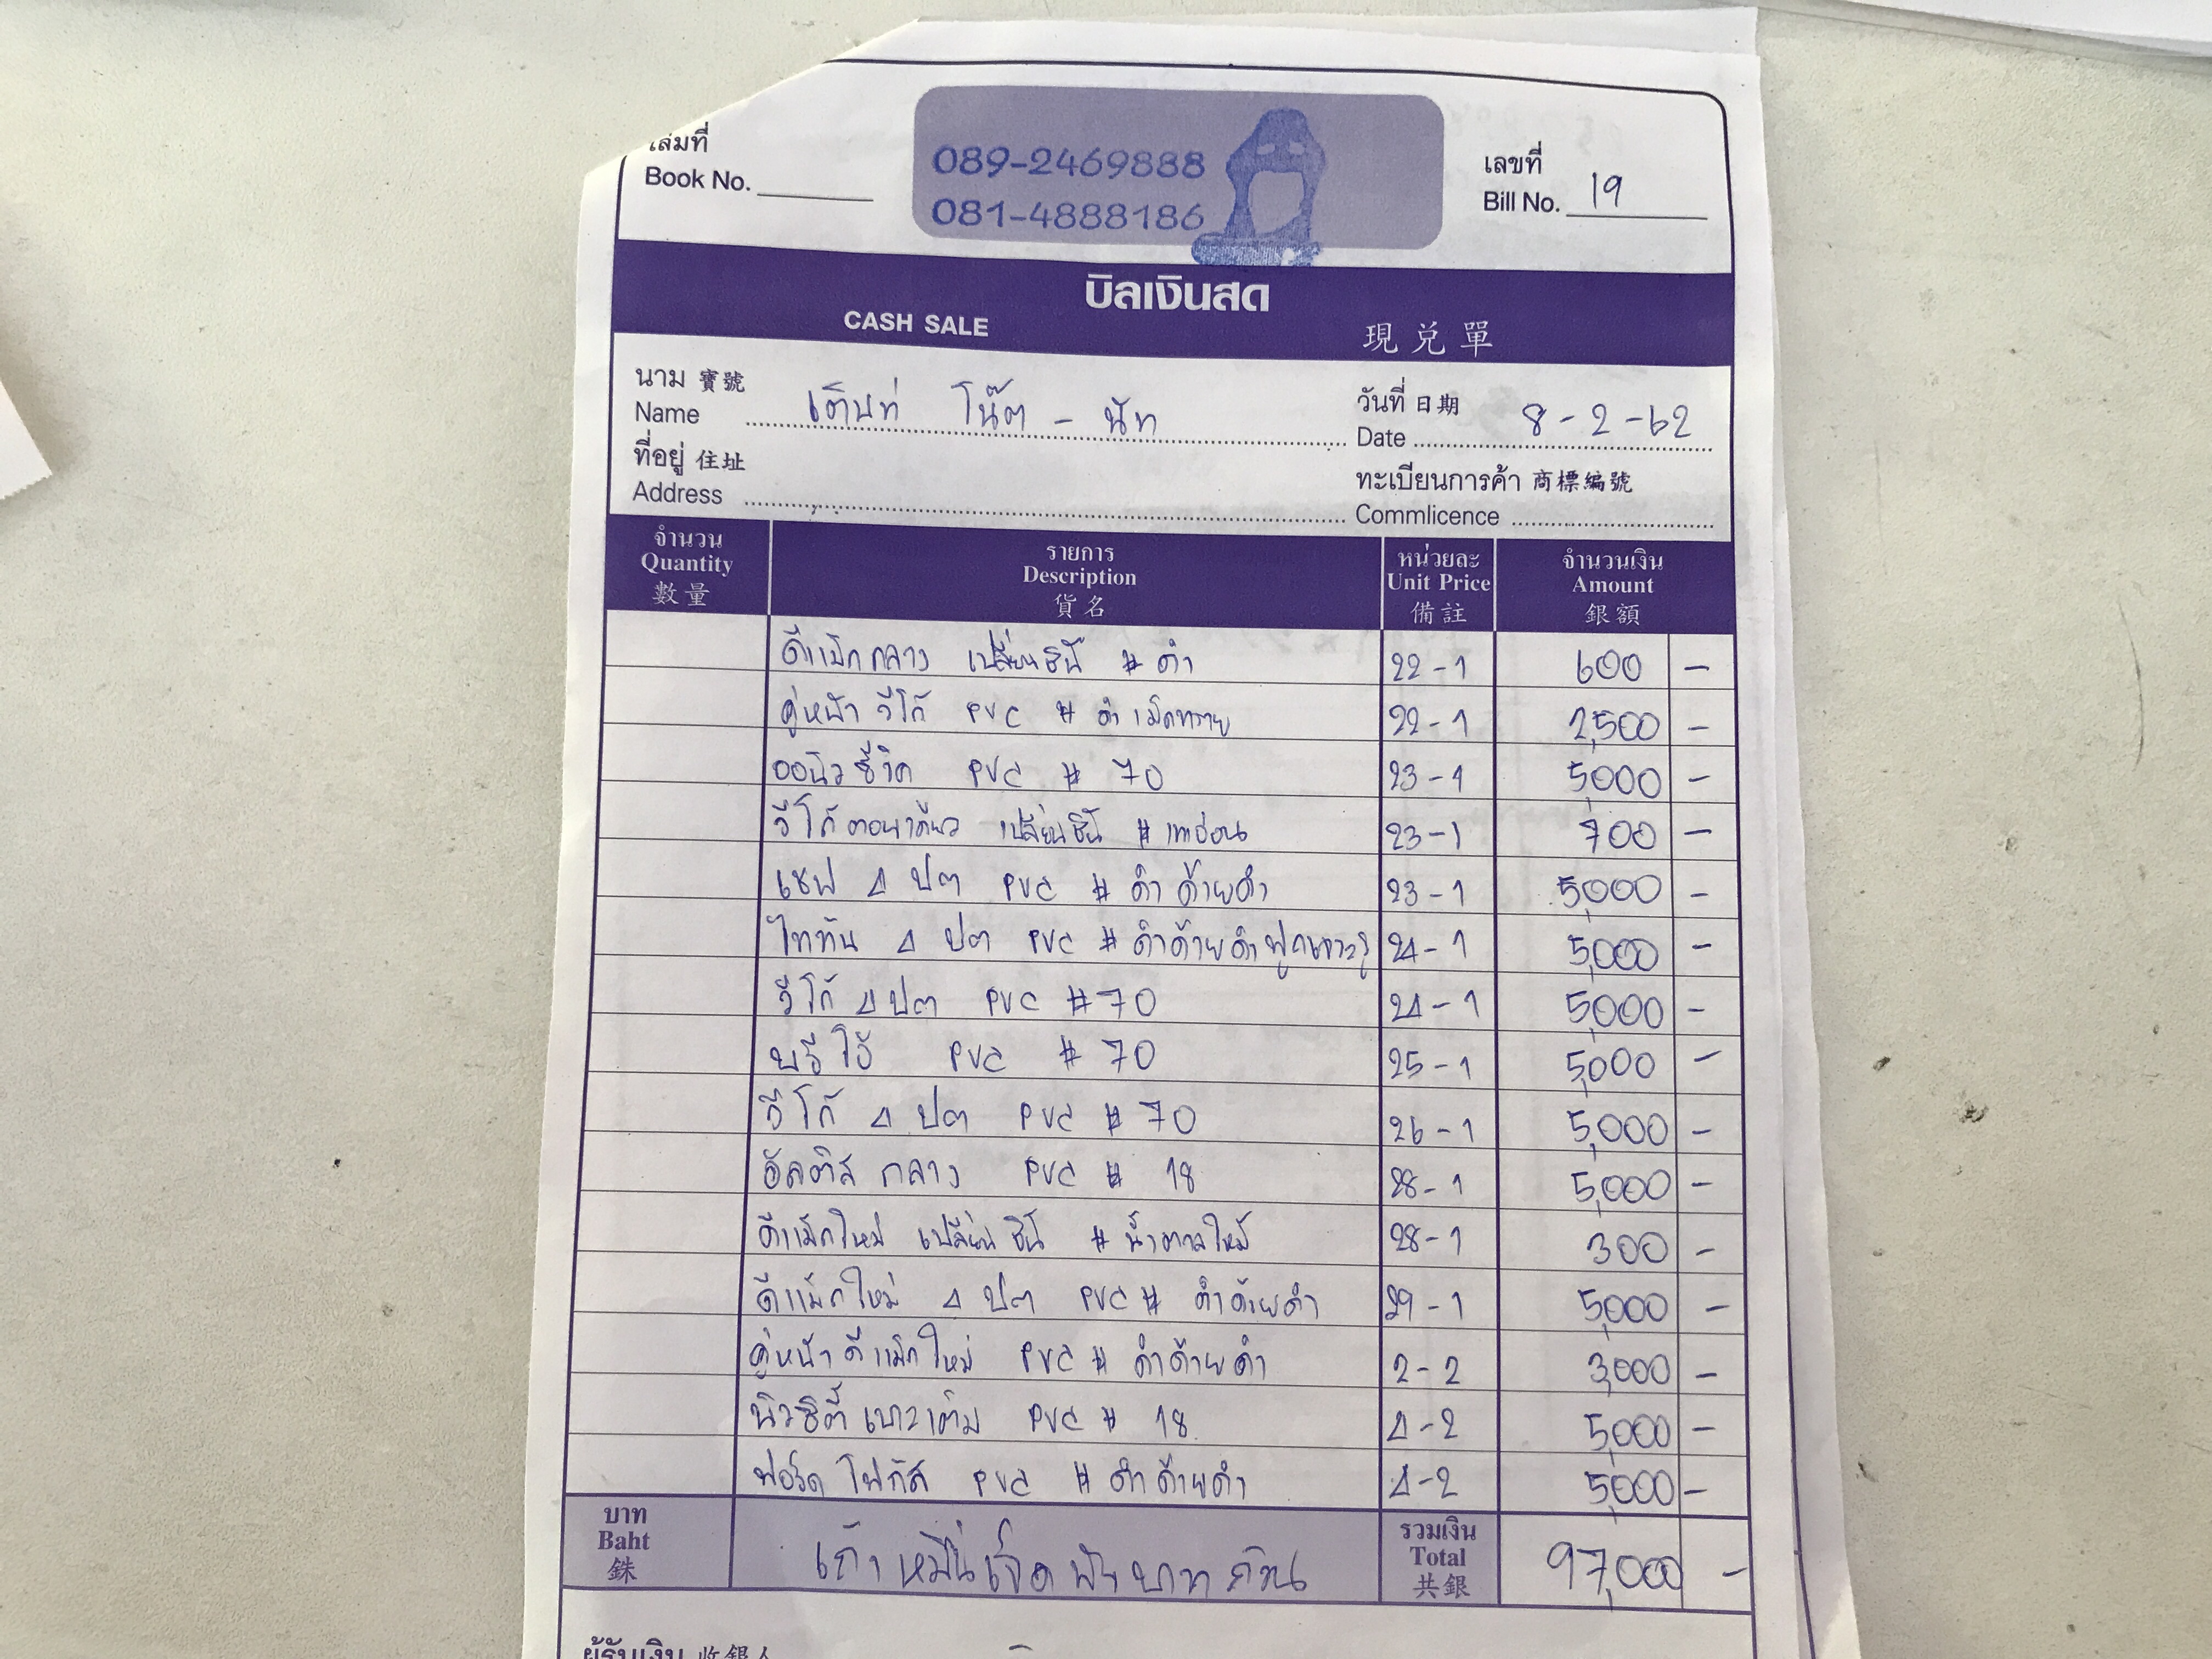 เล่มที่
Book No.
089-2469888
081-4888186
เลขที่
Bill No. 19
บิลเงินสด
CASH SALE
現兑單
นาม 寶號
Name เต็นท์ โน๊ต - นัท
วันที่ 日期
Date 8-2-62
ที่อยู่ 住址
Address
ทะเบียนการค้า 商標編號
Commlicence
จำนวน รายการ หน่วยละ จำนวนเงิน
Quantity Description Unit Price Amount
數量 貨名 備註 銀額
ดีแม็กกลาง เปลี่ยนชิ้น # ดำ 22-1 600 -
คู่หน้า วีโก้ PVC # ดำเม็ดทราย 22-1 2,500 -
PVC # 70 23-1 5,000 -
วีโก้ตอนเดียว เปลี่ยนชิ้น # เทาอ่อน 23-1 700 -
เชฟ 4 ปต PVC # ดำด้ายดำ 23-1 5,000 -
ไททัน 4 ปต PVC # ดำด้ายดำ 24-1 5,000 -
วีโก้ 4 ปต PVC # 70 24-1 5,000 -
บรีโอ้ PVC # 70 25-1 5,000 -
วีโก้ 4 ปต PVC # 70 26-1 5,000 -
อัลติส กลาง PVC # 18 28-1 5,000 -
ดีแม็กใหม่ เปลี่ยนชิ้น # น้ำตาลไหม้ 28-1 300 -
ดีแม็กใหม่ 4 ปต PVC # ดำด้ายดำ 29-1 5,000 -
คู่หน้าดีแม็กใหม่ PVC # ดำด้ายดำ 2-2 3,000 -
นิวซิตี้ เบาะเต็ม PVC # 18 4-2 5,000 -
ฟอร์ด โฟกัส PVC # ดำด้ายดำ 4-2 5,000 -
บาท
Baht
銖
เก้าหมื่นเจ็ดพันบาทถ้วน
รวมเงิน
Total
共銀
97,000 -
ผู้รับเงิน 收銀人